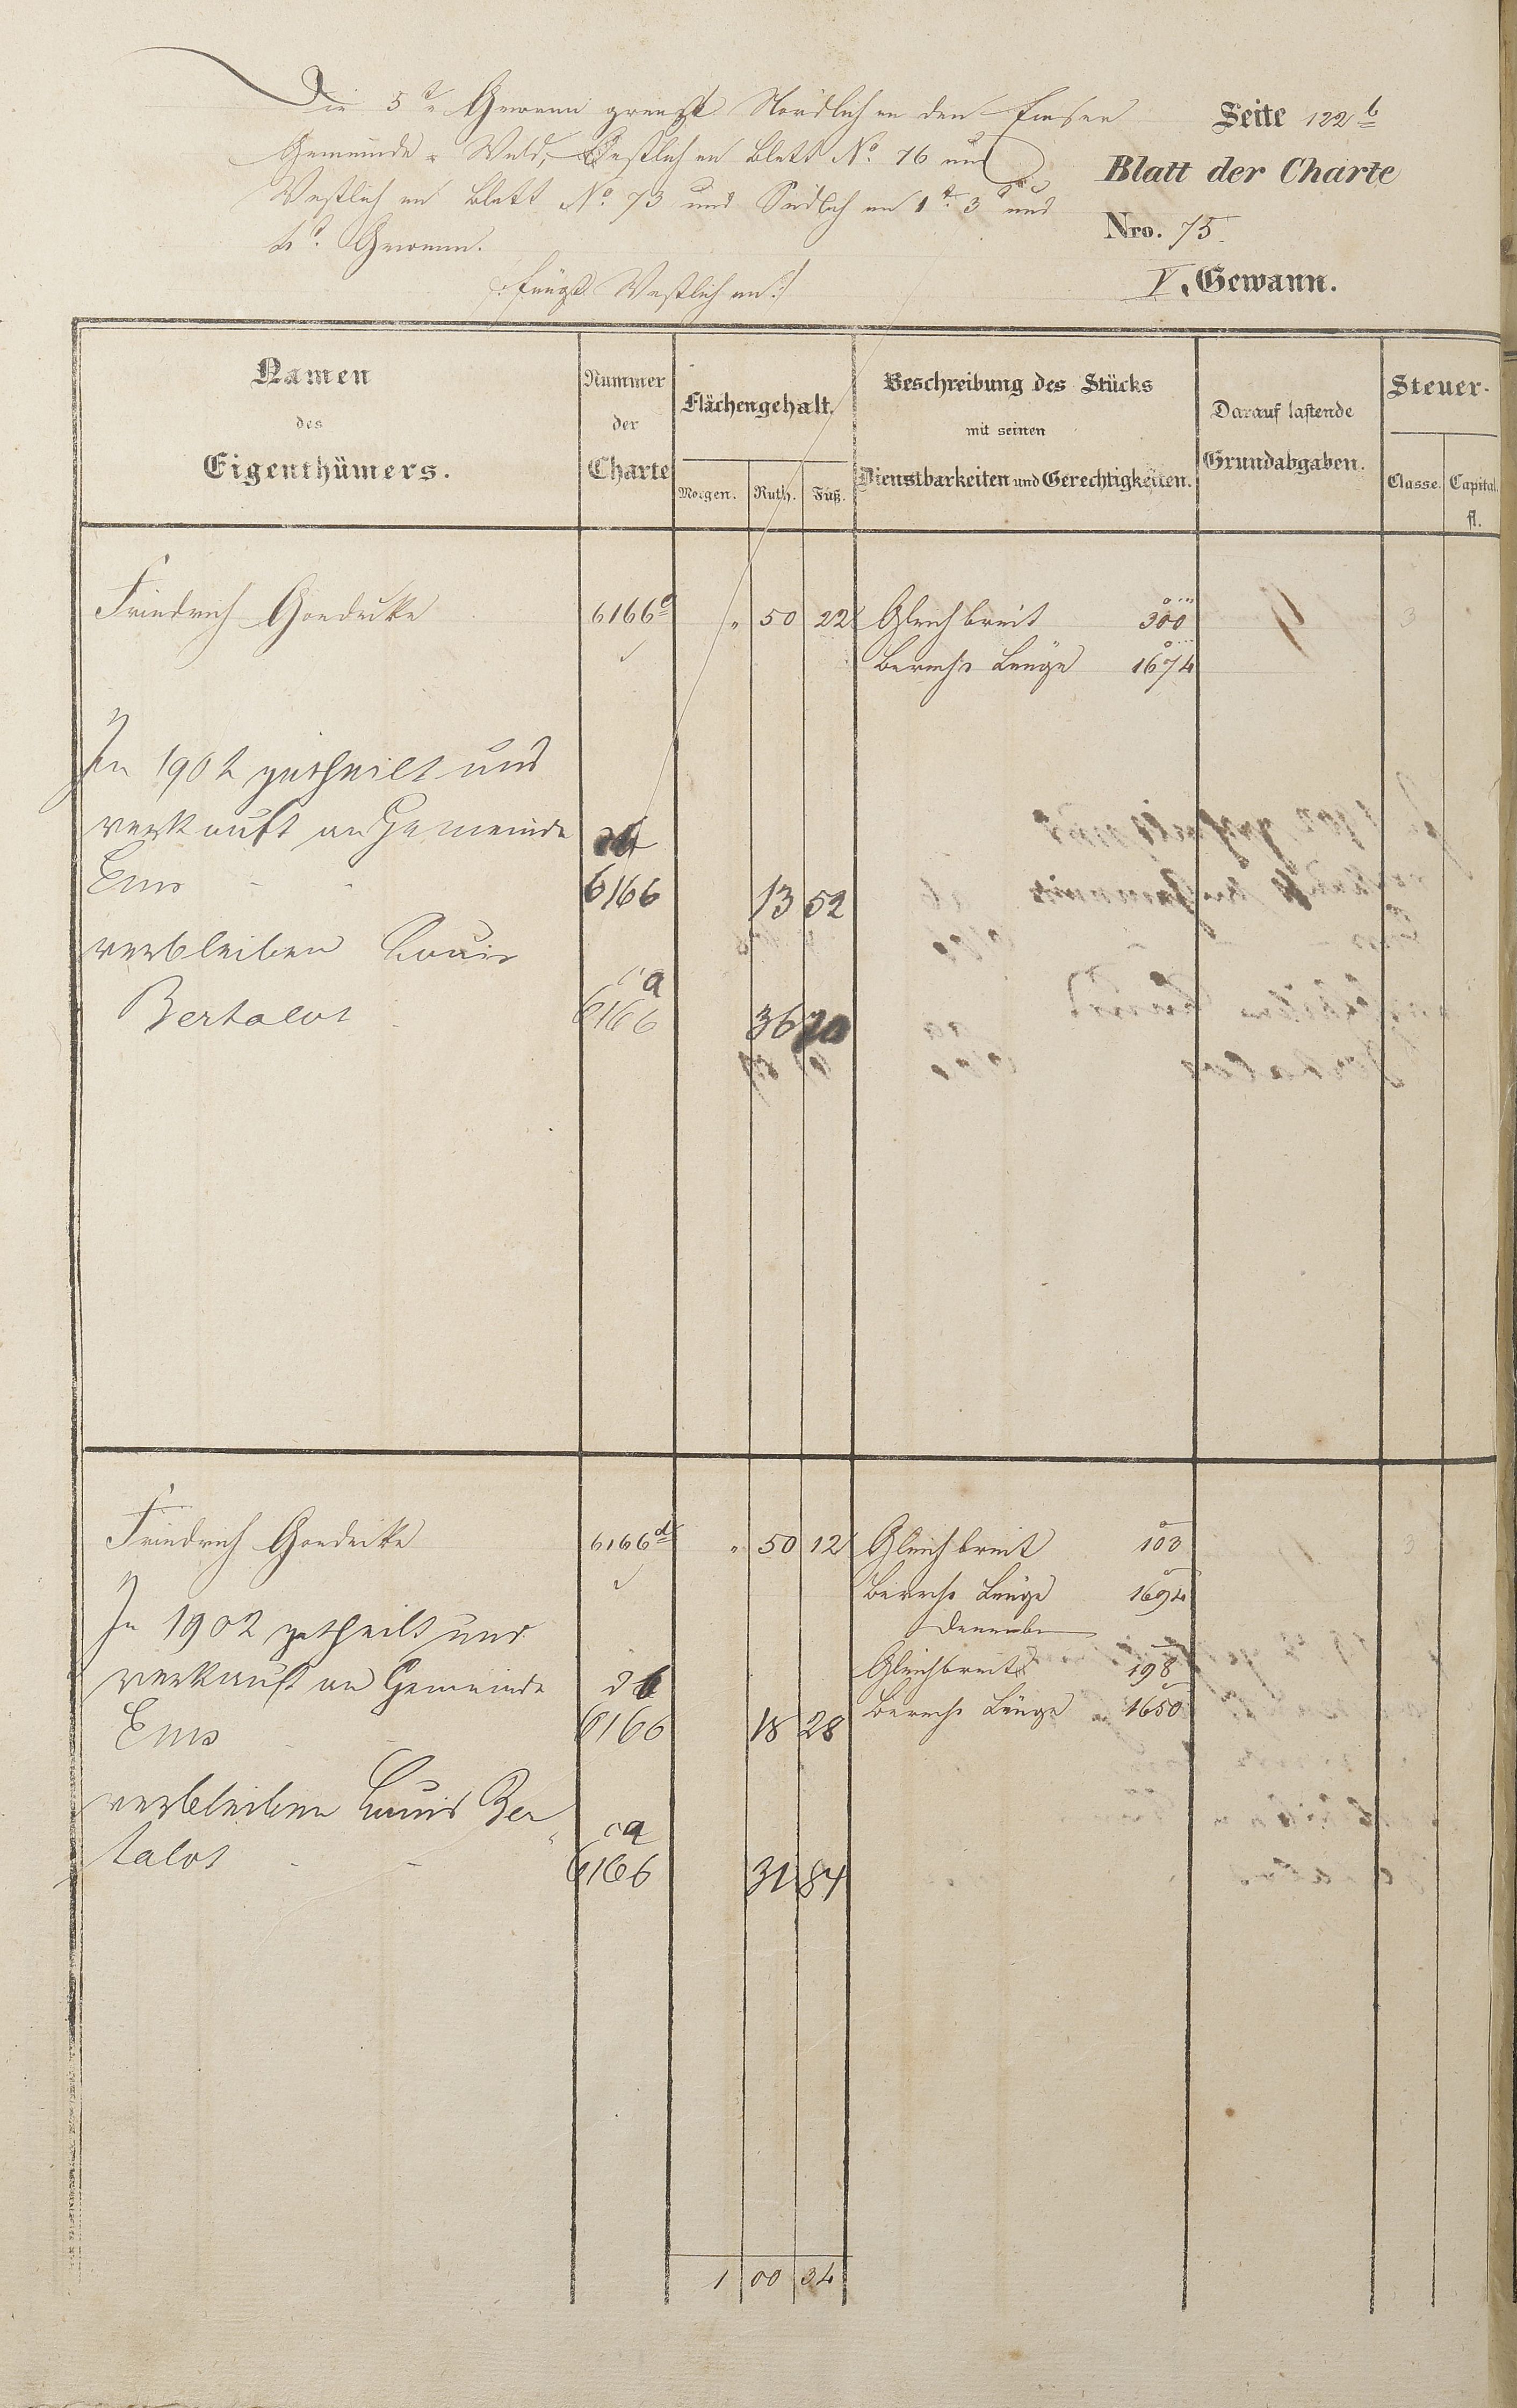 Die 5te Gewann grenzt Nördlich an den Emser
Gemeinde-Wald, Oestlich an Blatt No. 76 und
Westlich an Blatt No. 73 und Südlich an 1te 3te und
4te Gewann.
fängt Westlich an
Seite 122b
Blatt der Charte
Nro. 75.
V. Gewann.
Namen des Eigenthümers.
Nummer der Charte
Flächengehalt.
Morgen. Ruth. Fuß.
Beschreibung des Stücks mit seinen Dienstbarkeiten und Gerechtigkeiten.
Darauf lastende Grundabgaben.
Steuer-
Classe. Capital. fl.
Friedrich Goedecke 6166c " 50 22 Gleichbreit 300 3
Berechn Länge 1674
In 1902 getheilt und
verkauft an Gemeinde
Ems 6166 13 52
verbleiben Louis
Bertalot 6166 ca 36 70
Friedrich Goedecke 6166d " 50 12 Gleichbreit 103 3
Berechn Länge 1694
daneben
In 1902 getheilt und
Gleichbreit 198
verkauft an Gemeinde db
Berechn Länge 1650
Ems 6166 18 28
verbleiben Louis Ber-
talot 6166 31 84
1 00 34